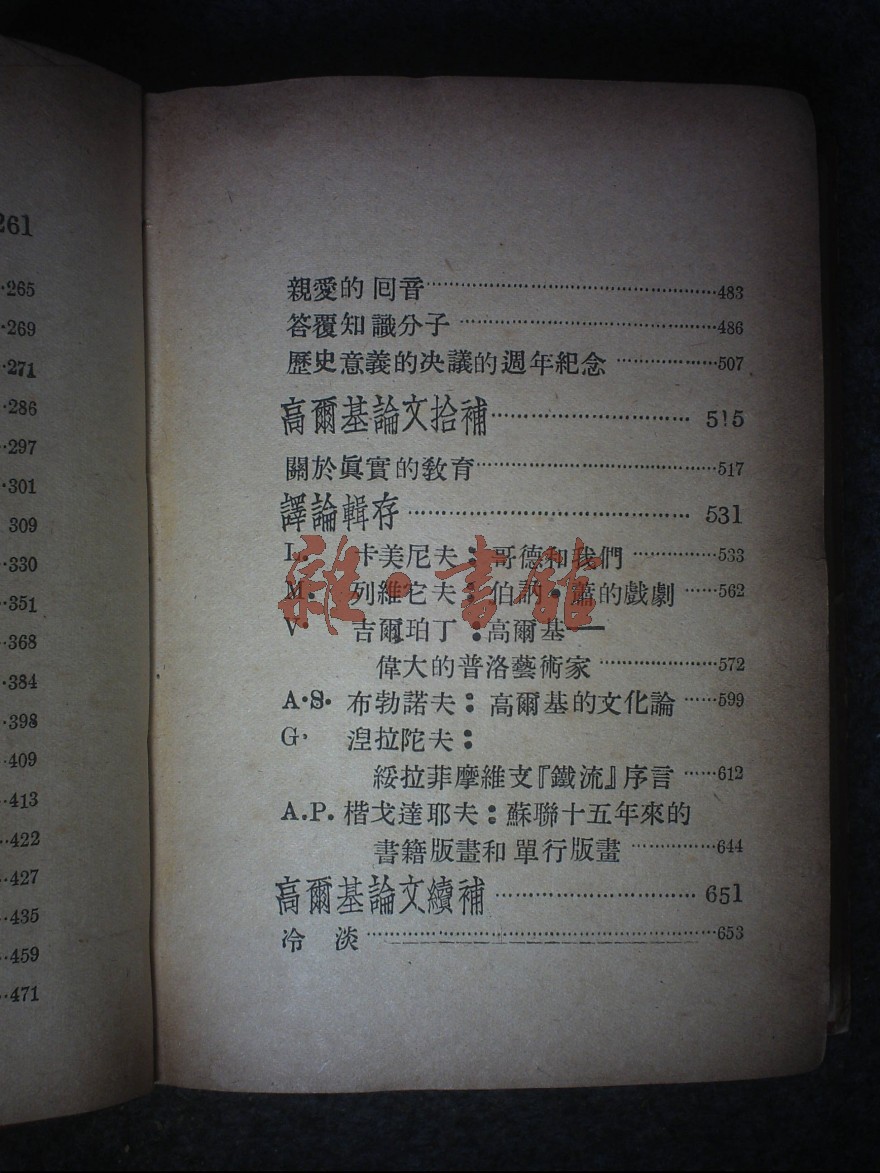 261
··265
··269
··271
··286
··297
··301
309
··330
··351
··368
··384
··398
··409
··413
··422
··427
··435
··459
··471
親愛的回音……483
答覆知識分子……486
歷史意義的決議的週年紀念……507
高爾基論文拾補……515
關於眞實的敎育……517
譯論輯存……531
L. 卡美尼夫：哥德和我們……533
M. 列維它夫：伯訥·蕭的戲劇……562
V. 吉爾珀丁：高爾基——
偉大的普洛藝術家……572
A.S. 布勃諾夫：高爾基的文化論……599
G. 湼拉陀夫：
綏拉菲摩維支『鐵流』序言……612
A.P. 楷戈達耶夫：蘇聯十五年來的
書籍版畫和單行版畫……644
高爾基論文續補……651
冷 淡……653
雜·書館